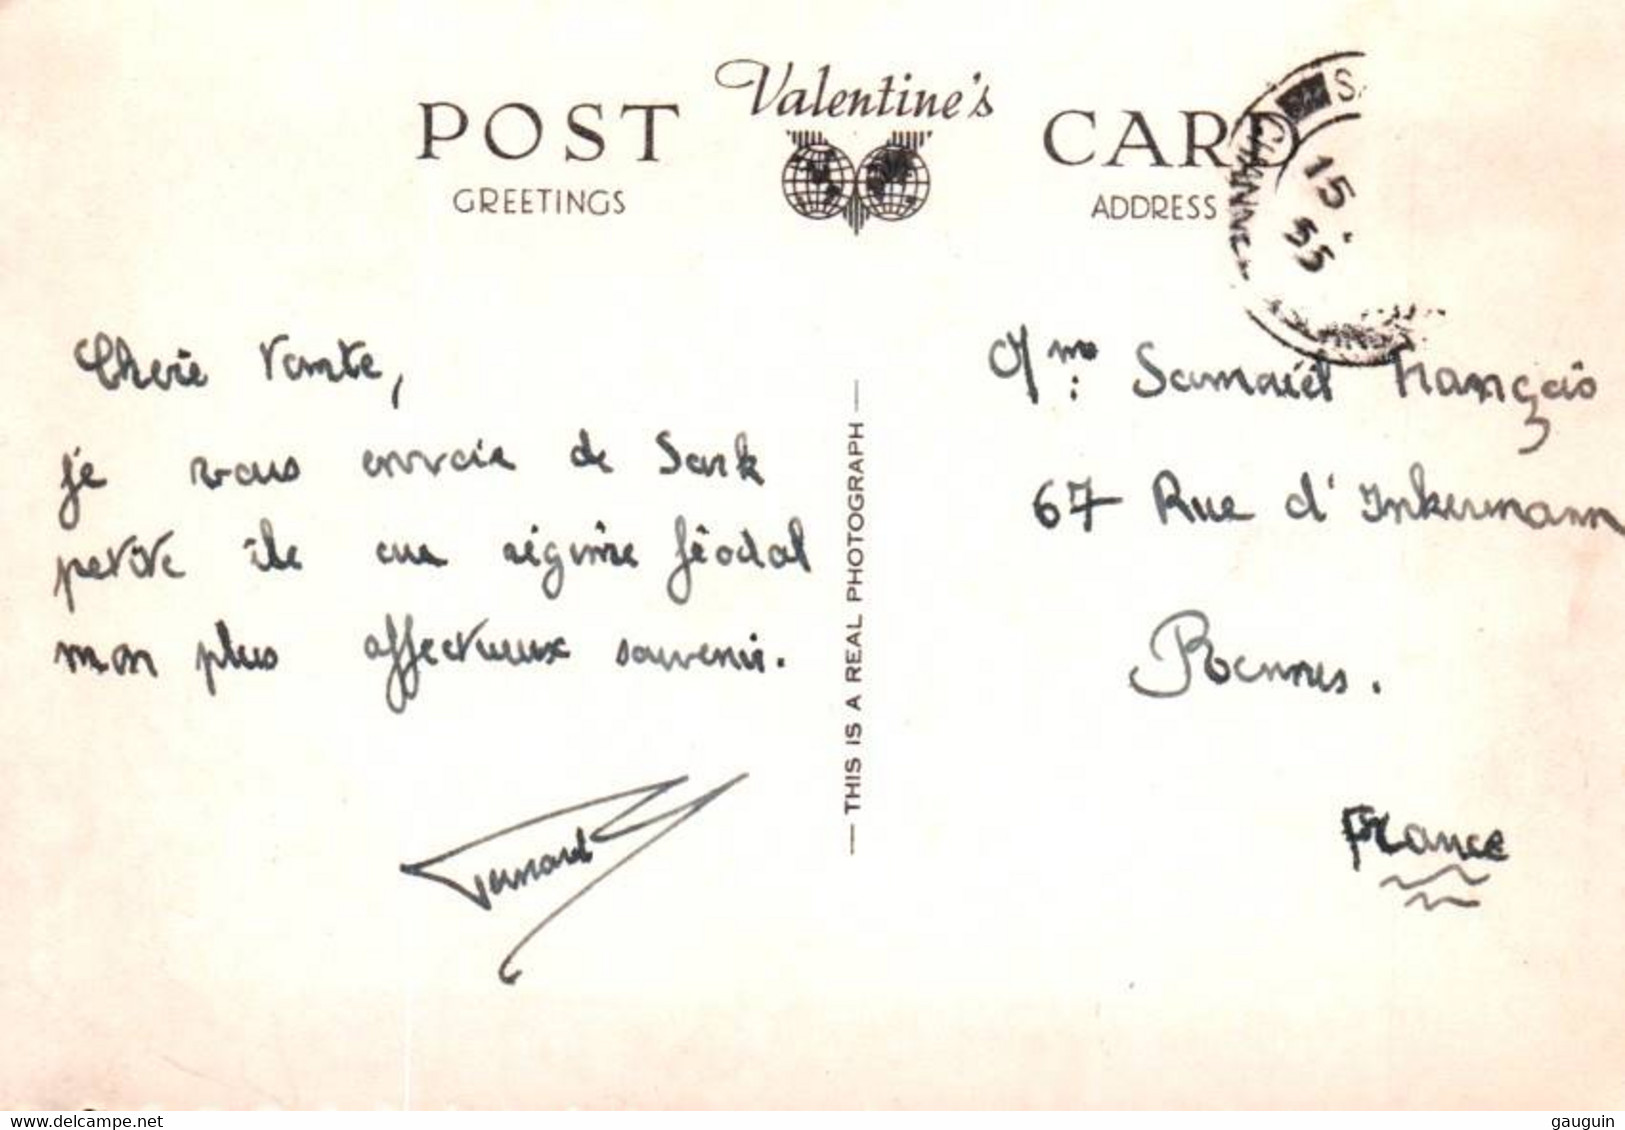 POST
Valentine's
CARD
GREETINGS
ADDRESS
CHANNEL
15
55
Chère Tante,
je vous envoie de Sark
petite île au régime féodal
mon plus affectueux souvenir.
Bernard
— THIS IS A REAL PHOTOGRAPH —
Mme: Samaiél François
67 Rue d'Inkermann
Rennes.
France
gauguin